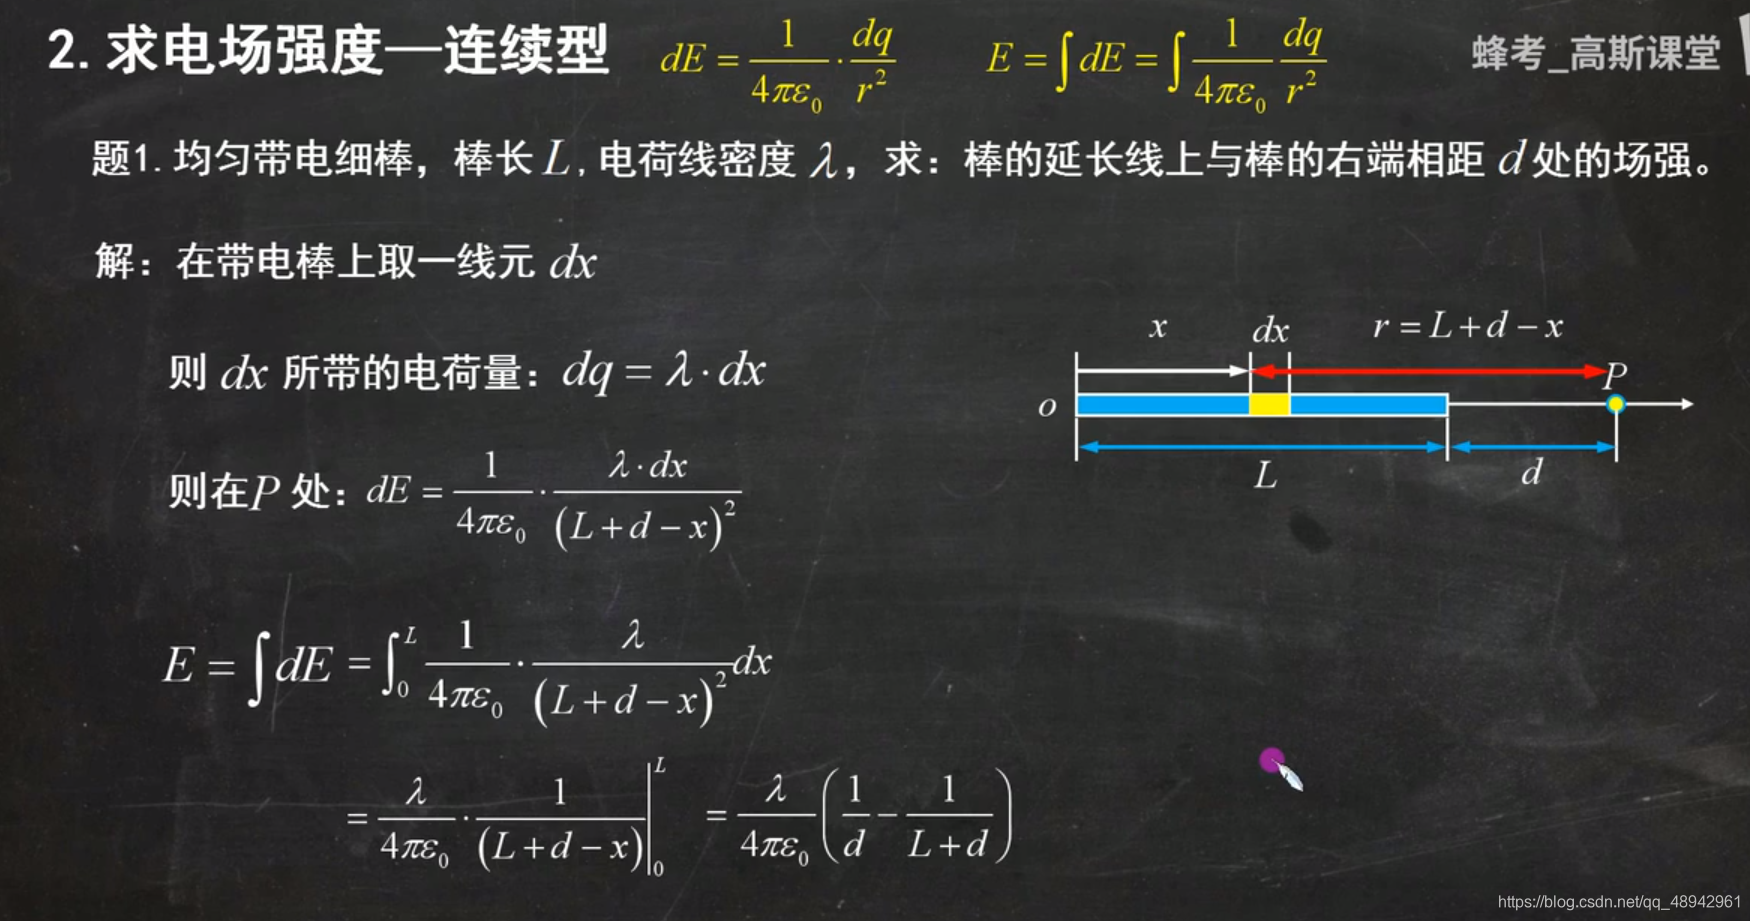 2.求电场强度—连续型 dE = 1/(4πε₀) · dq/r² E = ∫dE = ∫ 1/(4πε₀) dq/r² 蜂考_高斯课堂
题1.均匀带电细棒，棒长 L，电荷线密度 λ，求：棒的延长线上与棒的右端相距 d 处的场强。
解：在带电棒上取一线元 dx
x dx r = L+d−x
则 dx 所带的电荷量：dq = λ · dx
P
o
L d
则在P 处：dE = 1/(4πε₀) · (λ·dx)/(L+d−x)²
E = ∫dE = ∫₀ᴸ 1/(4πε₀) · λ/(L+d−x)² dx
= λ/(4πε₀) · 1/(L+d−x) |₀ᴸ = λ/(4πε₀) (1/d − 1/(L+d))
https://blog.csdn.net/qq_48942961